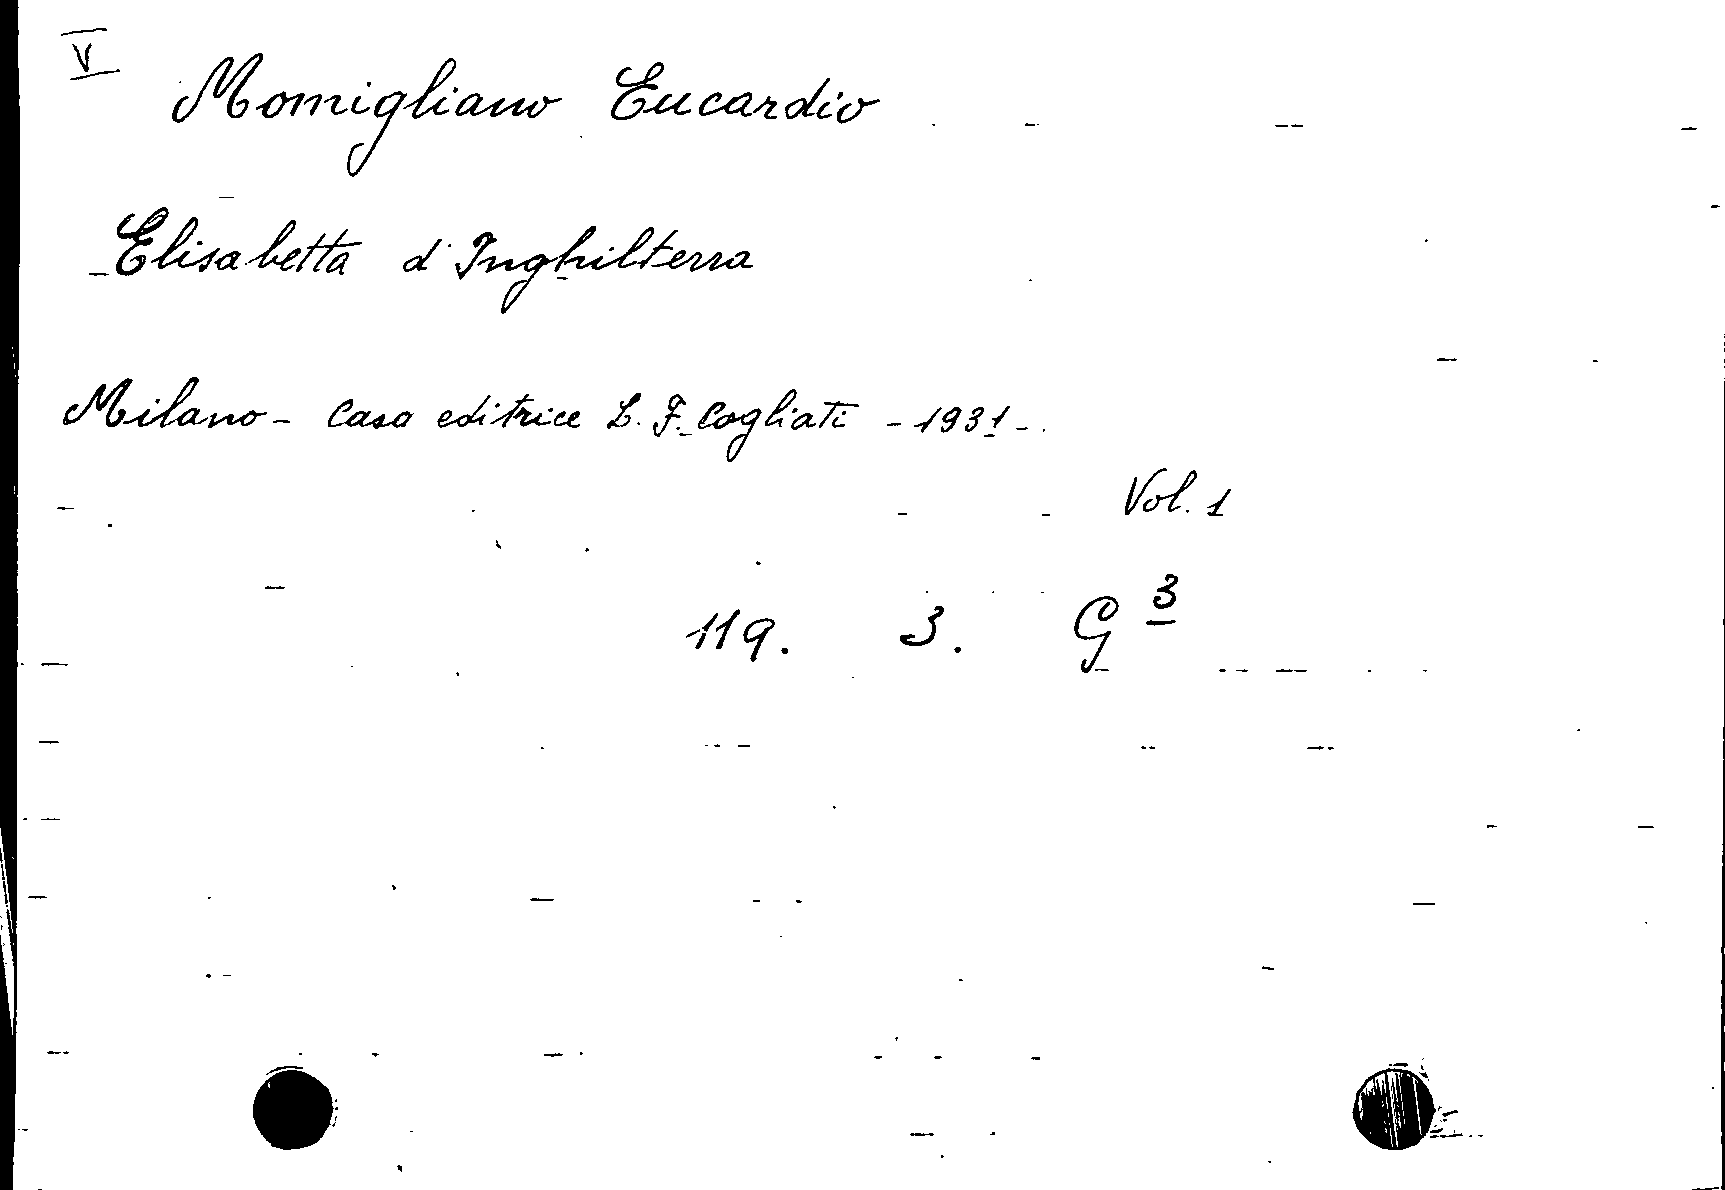 V
Momigliano Eucardio
Elisabetta d'Inghilterra
Milano - Casa editrice L. F. Cogliati - 1931 -
Vol. 1
119. 3. G 3